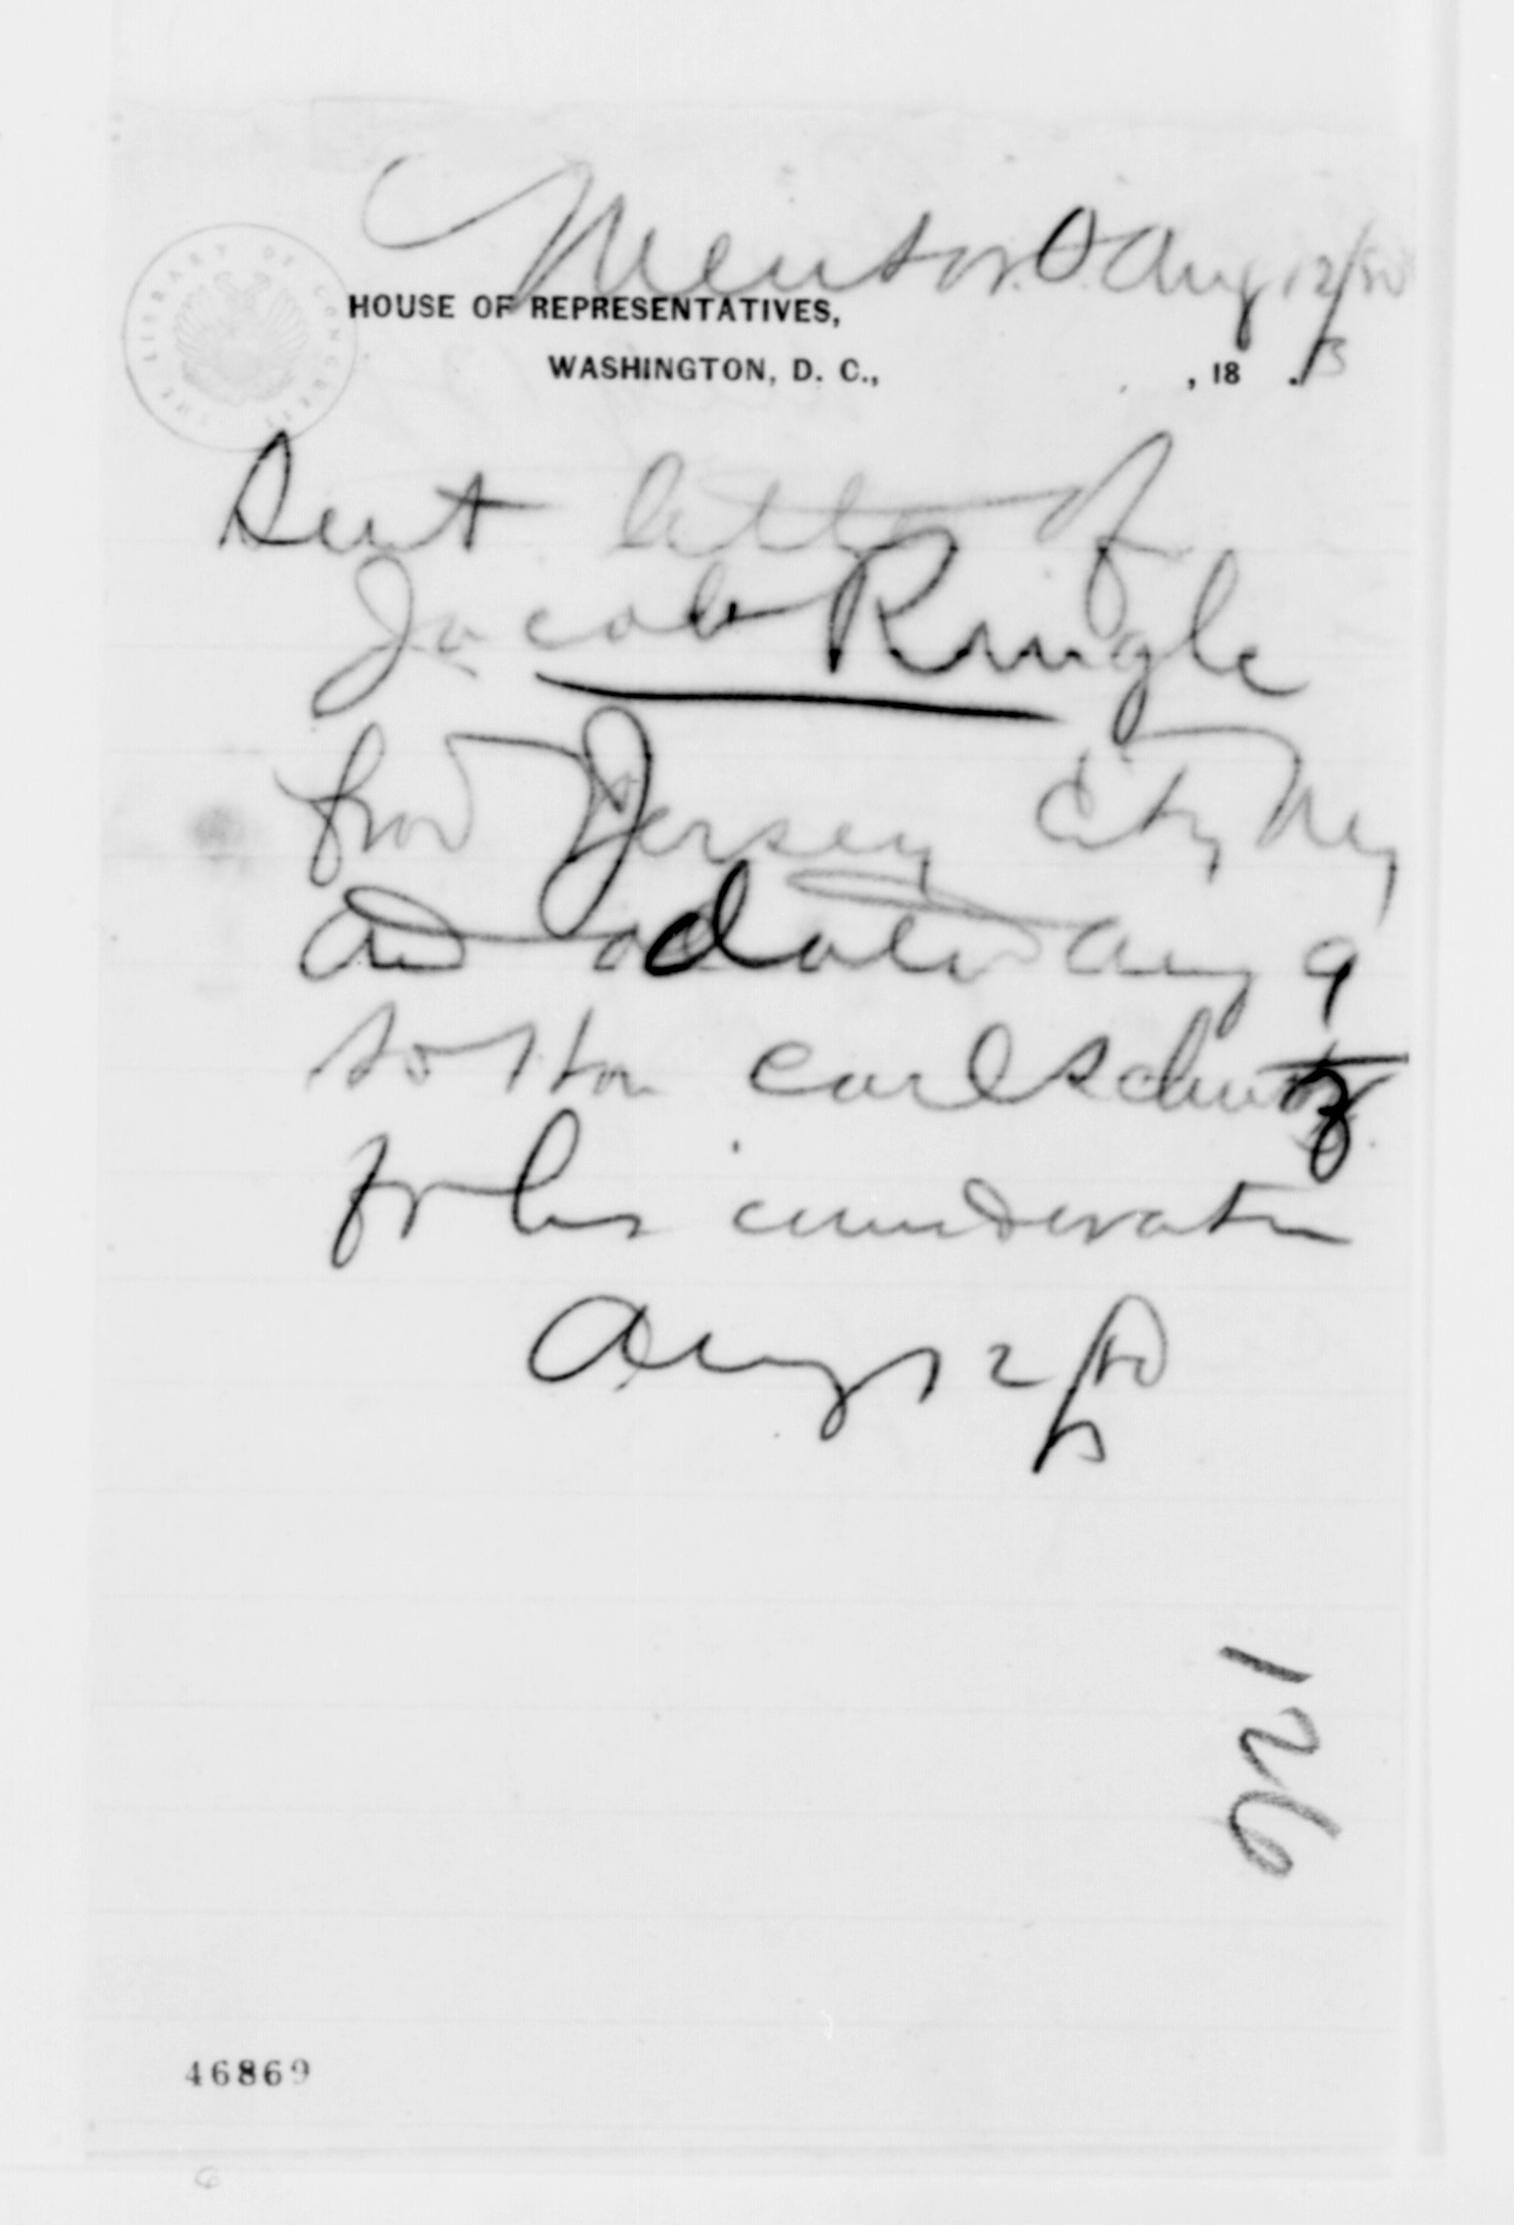 Mentor. O Aug 12/80
HOUSE OF REPRESENTATIVES,
WASHINGTON, D. C., , 18 .
THE LIBRARY OF CONGRESS
Sent letter of
Jacob Ringle
from Jersey City
and dated Aug 9
to Hon Carl Schurz
for his consideration
Aug 12/80
126
46869